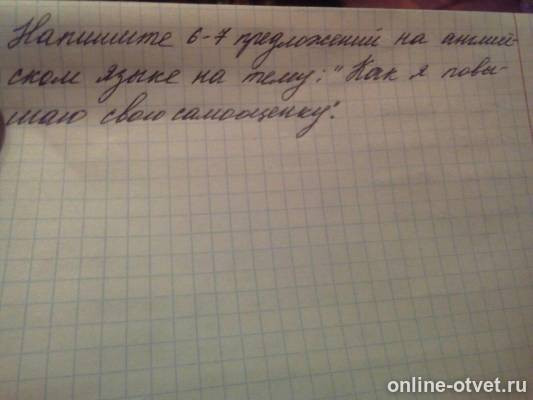 Напишите 6-7 предложений на англий-
ском языке на тему: "Как я повы-
шаю свою самооценку".
online-otvet.ru